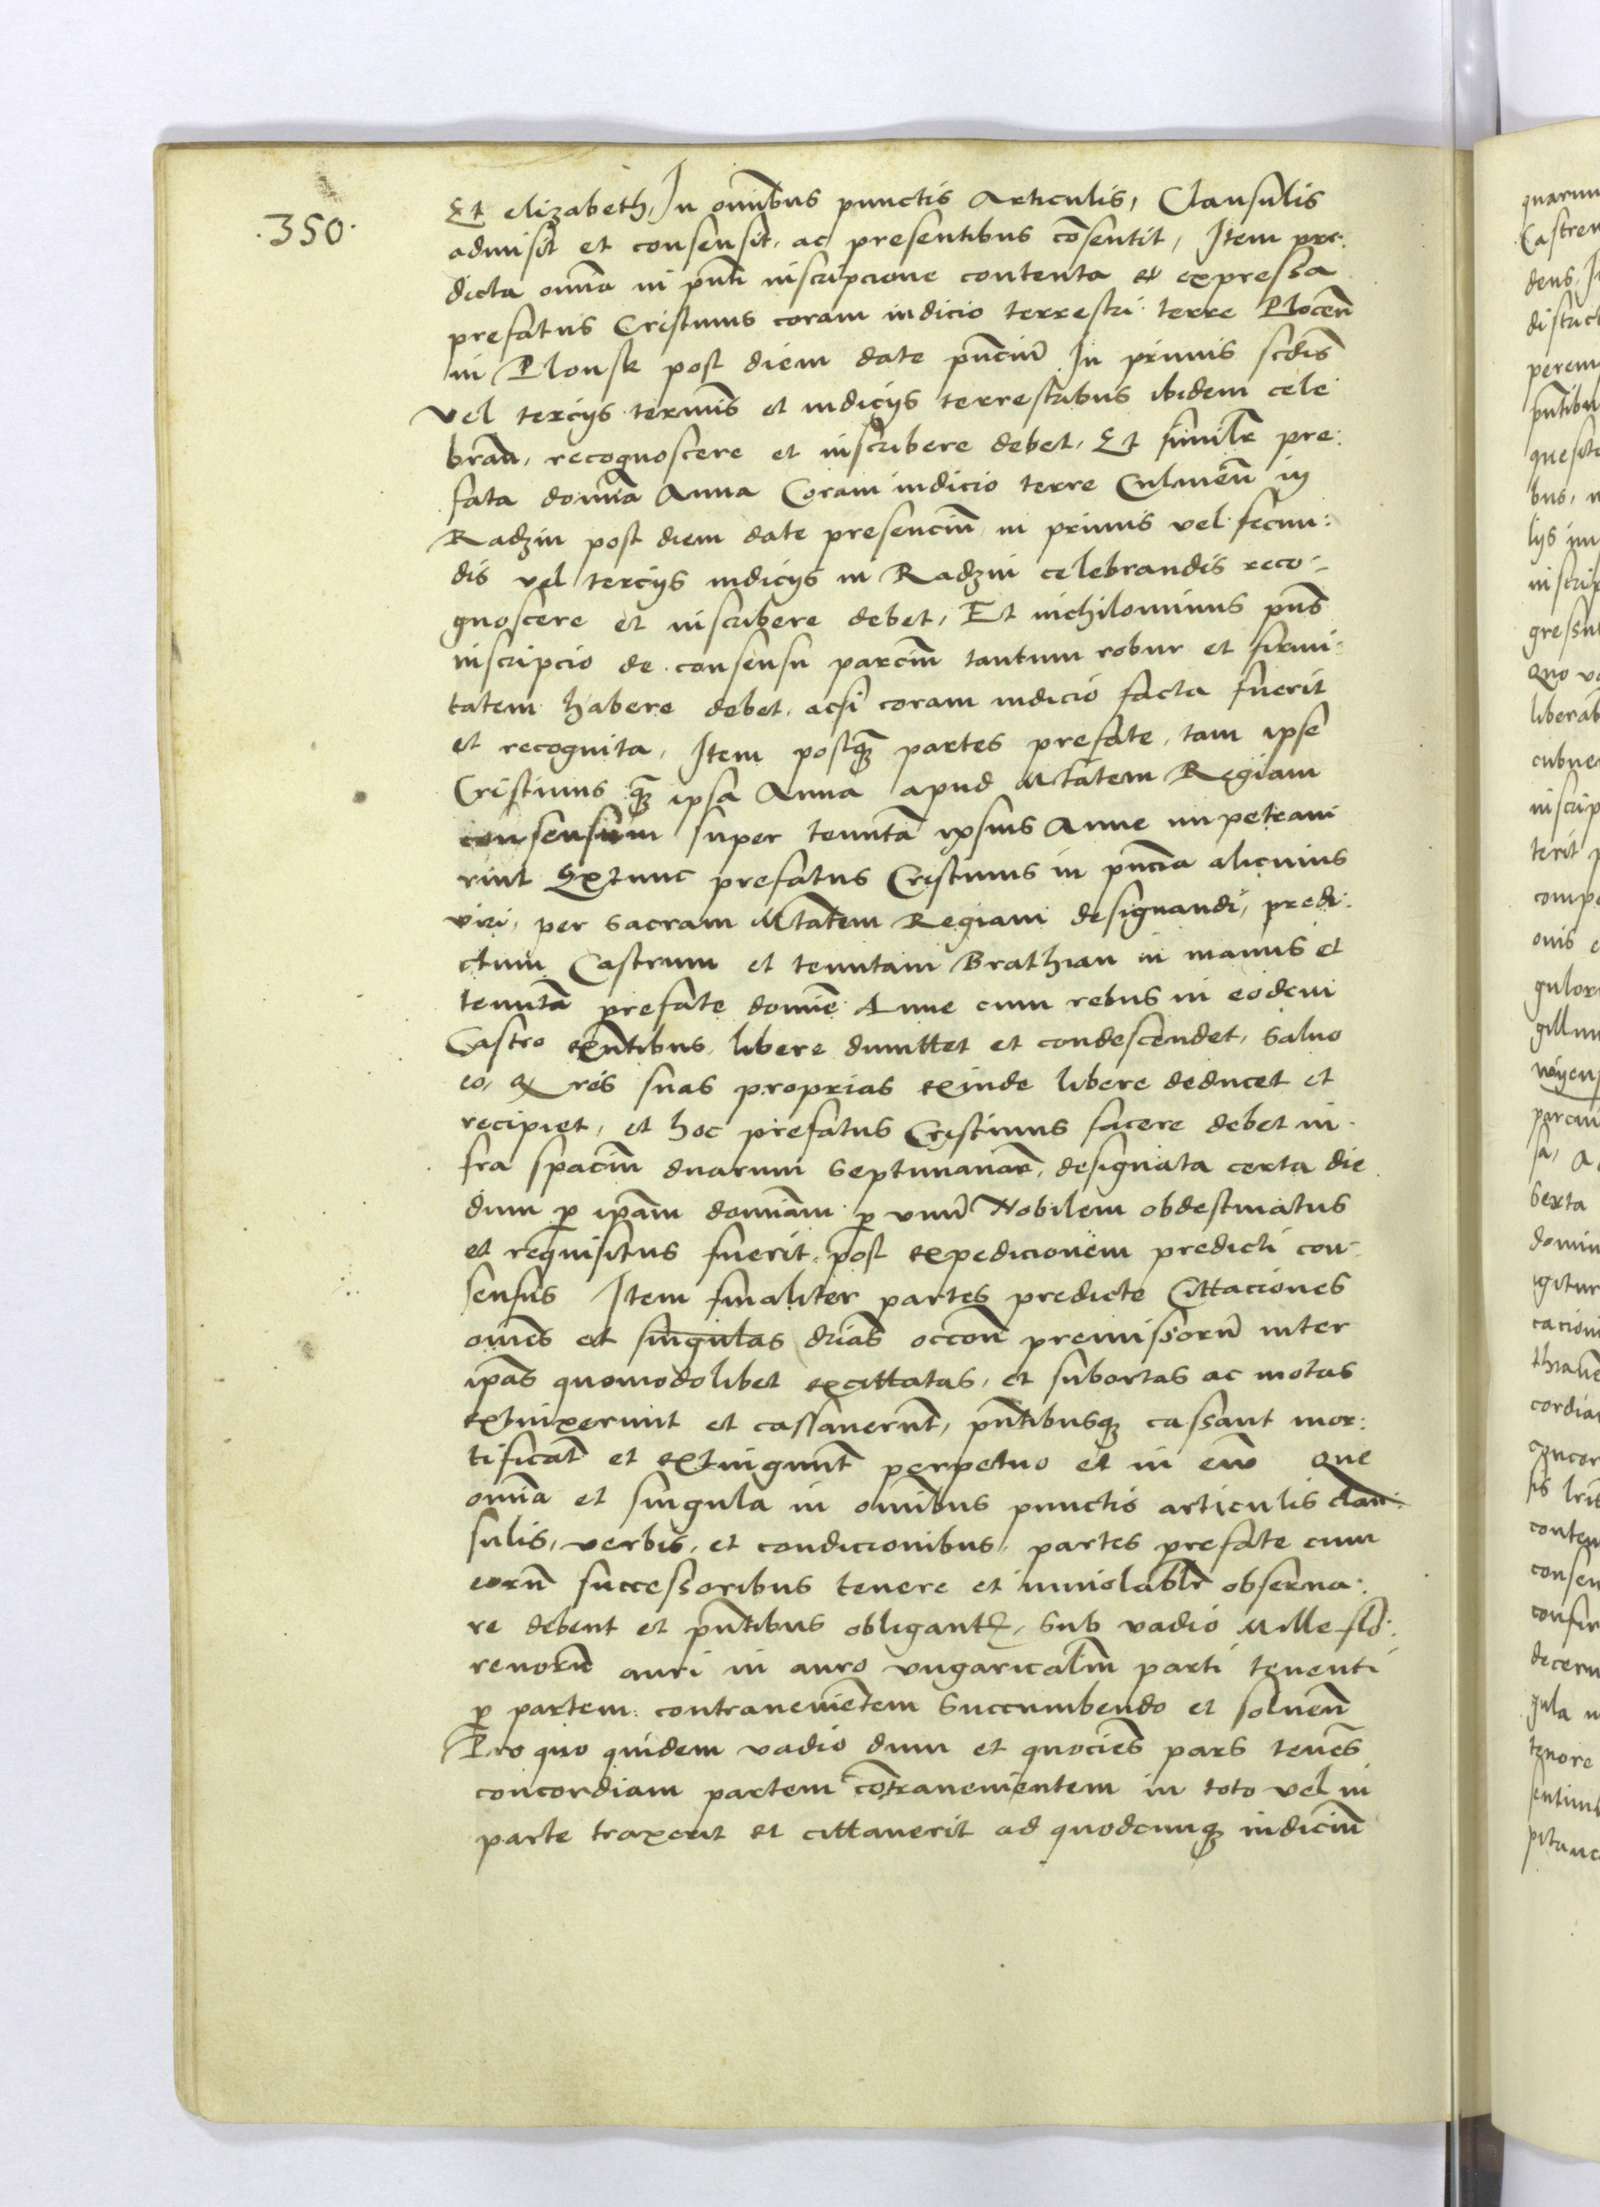 .350.
Et elizabeth, In omnibus punctis Articulis, Clausulis
admisit et consensit, ac presentibus cōsentit, Item pre:
dicta omnia in pnti inscripcione contenta et expressa
prefatus Cristinus coram iudicio terrestri terre Plocen̄
in Plonsk post diem date pn̄ciū In primis scdis
vel tercijs terminis et iudicijs terrestribus ibidem cele
bran̄, recognoscere et inscribere debet, Et similr̄ pre:
fata domina Anna Coram iudicio terre Culmen̄ in
Radzin post diem date presenciū in primis vel secun:
dis vel tercijs iudicijs in Radzin celebrandis reco:
gnoscere et inscribere debet, Et nichilominus pn̄s
inscripcio de consensu parciū tantum robur et firmi:
tatem habere debet, acsi coram iudicio facta fuerit
et recognita, Item postq̄ partes prefate, tam ipse
Cristinus q̄ ipsa Anna apud Mtatem Regiam
consensum super tenutā ipsius Anne impetraui
rint Extunc prefatus Cristinus in pn̄cia alicuius
viri, per sacram Mtatem Regiam designandi, predi:
ctum Castrum et tenutam Brathian in manus et
tenutā prefate domīe Anne cum rebus in eodem
Castro exn̄tibus, libere dimittet et condescendet, saluo
eo, q̄ res suas proprias exinde libere deducet et
recipiet, et hoc prefatus Cristinus facere debet in
fra spaciū duarum septimanar̄, designata certa die
dum p̱ ipām dominām p̱ vnū Nobilem obdestinatus
et requisitus fuerit, post expedicionem predicti con:
sensus Item finaliter partes predicte Cittaciones
omēs et singulas driās occōn premissorū inter
ipās quomodolibet excittatas, et subortas ac motas
extinxerunt et cassauerūt, pn̄tibusq̄ cassant mor:
tificāt et extingunt perpetuo et in euū Que
omnia et singula in omnibus punctis articulis clau:
sulis, verbis, et condicionibus, partes prefate cum
eorū successoribus tenere et inuiolablr̄ obserua:
re debent et pn̄tibus obligantr̄, sub vadio Mille flo:
renorū auri in auro vngaricaliū parti tenenti
p̱ partem contrauenientem Succumbendo et soluen̄
Pro quo quidem vadio dum et quociēs pars tenēs
concordiam partem cōtrauenientem in toto vel in
parte traxerit et cittauerit ad quodcunq̄ iudiciū